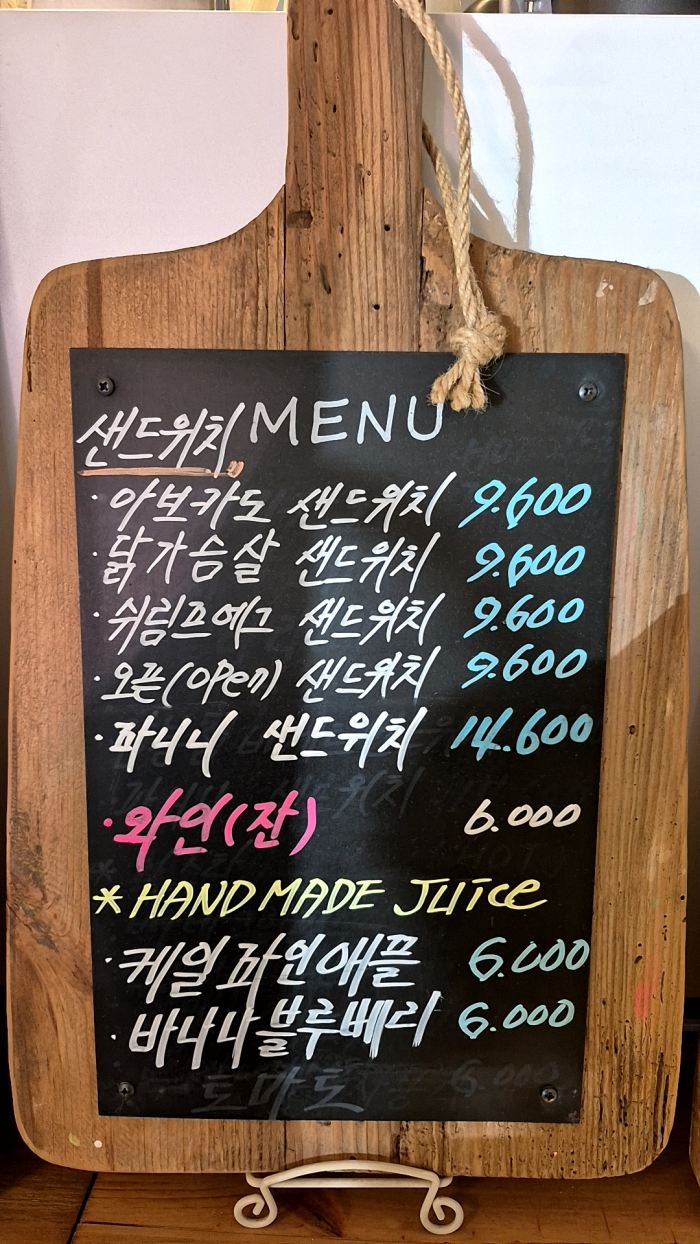 샌드위치 MENU
· 아보카도 샌드위치 9.600
· 닭가슴살 샌드위치 9.600
· 쉬림프에그 샌드위치 9.600
· 오픈(open) 샌드위치 9.600
· 파니니 샌드위치 14.600
· 와인(잔) 6.000
* HAND MADE JUice
· 케일파인애플 6.000
· 바나나블루베리 6.000
토마토 6.000